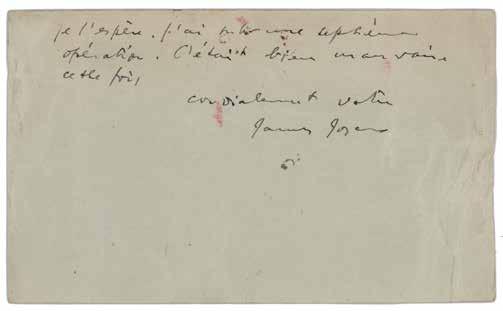 je l'espère. J'ai subi une septième
opération. C'était bien mauvaise
cette fois,
cordialement votre
James Joyce